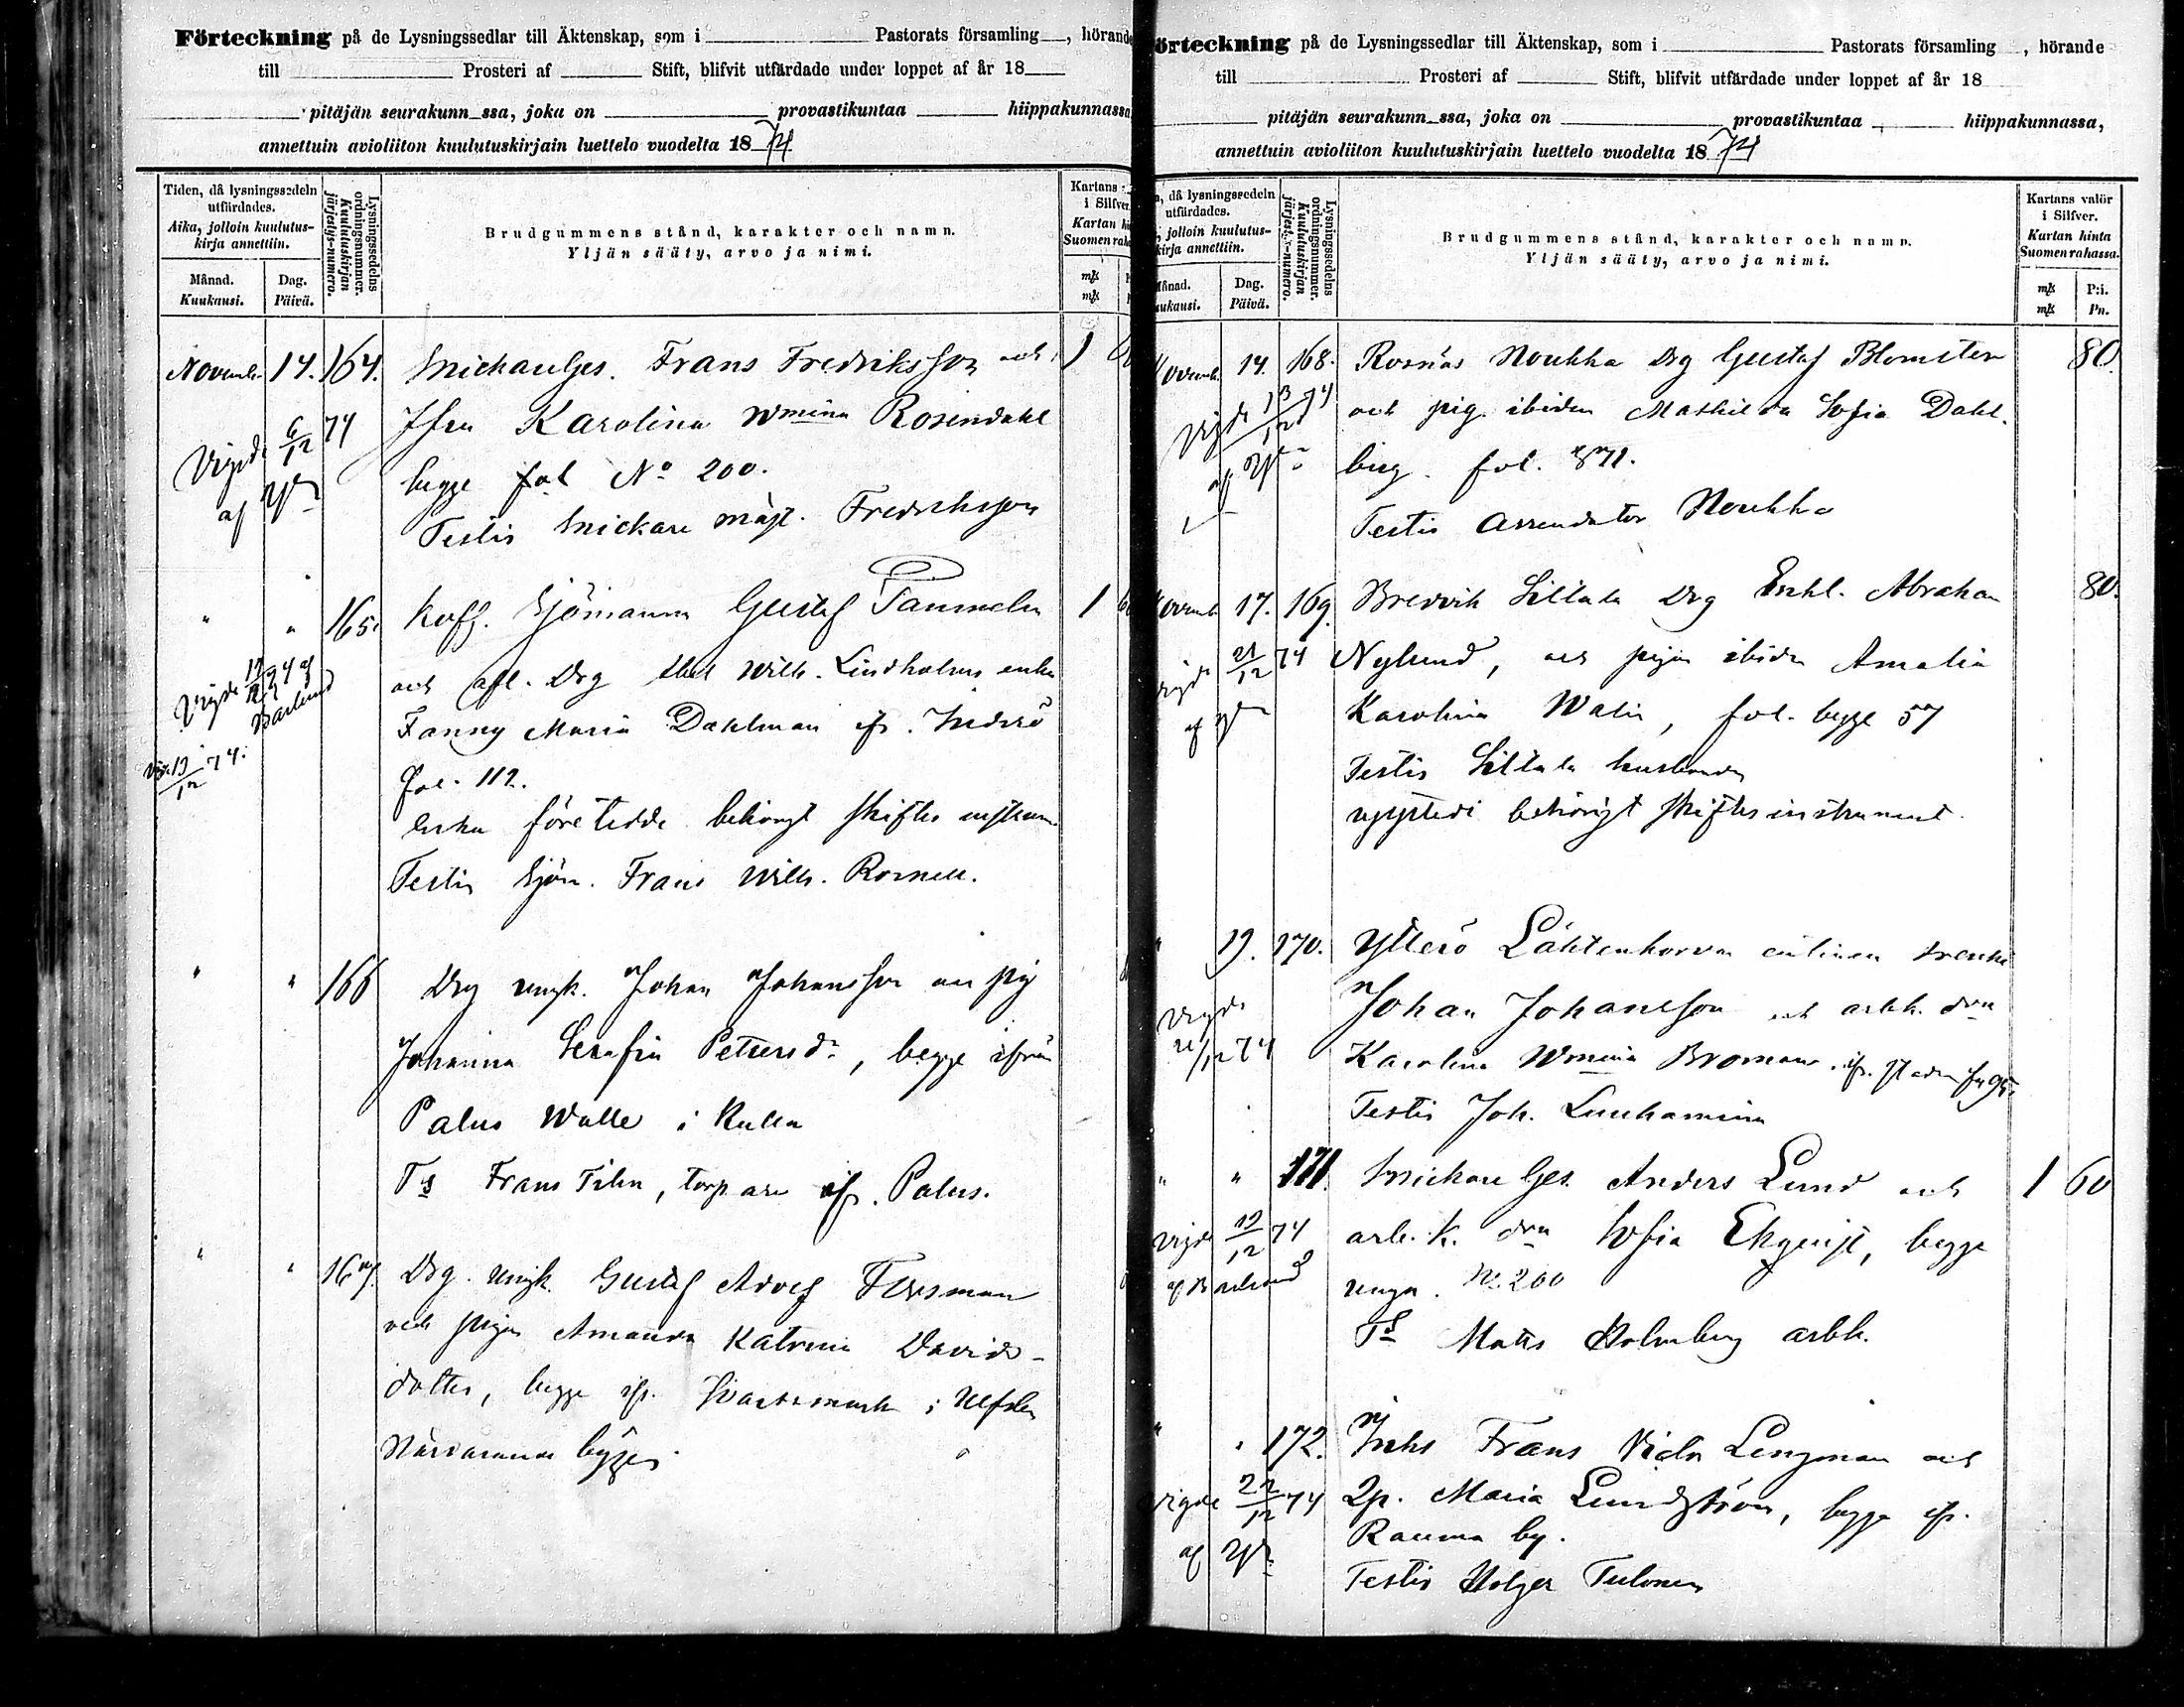 Förteckning på de Lysningssedlar till Äktenskap, som i Pastorats församling , hörande
till Prosteri af Stift, blifvit utfärdade under loppet af år 18
pitäjän seurakunn ssa, joka on provastikuntaa hiippakunnassa
annettuin avioliiton kuulutuskirjain luettelo vuodelta 1874
Tiden, då lysningssedeln utfärdades.
Aika, jolloin kuulutus-
kirja annettiin.
Månad.
Kuukausi.
Dag.
Päivä.
Lysningssedelns
ordningsnummer.
Kuulutuskirjan
järjestys-numero.
Brudgummens stånd, karakter och namn.
Yljän sääty, arvo ja nimi.
Kartans
i Silfver.
Kartan
Suomen
Novemb. 14. 164. Snickareges. Frans Fredriksson och 1
Jfru Karolina Wmina Rosendahl
Vigde 6/12 74
begge fol No 200.
af
Testis Snickare mäst. Fredriksson
" " 165. Koff. Sjömannen Gustaf Tammelin 1
och afl. Drg Wilh. Lindholms enka
Vigde 74 af Barlund
Fanny Maria Dahlman ifr. Inderö
13/12 74.
fol. 112.
Enkan företedde behörigt skiftes instrum.
Testis Sjöm. Frans Wilh. Rosnell.
" " 166 Drg ungk. Johan Johansson och pig
Johanna Serafia Petersdr, begge ifrån
Palus Walle i Kulla
Ts Frans Tilen, torpare ifr. Palus.
" " 167. Drg. ungk. Gustaf Adolf Forsman
och pigan Amanda Katrina Davids-
dotter, begge ifr. Svartsmark i Ulfsby
Närvarande begge
Förteckning på de Lysningssedlar till Äktenskap, som i Pastorats församling , hörande
till Prosteri af Stift, blifvit utfärdade under loppet af år 18
pitäjän seurakunn ssa, joka on provastikuntaa hiippakunnassa,
annettuin avioliiton kuulutuskirjain luettelo vuodelta 1874
då lysningssedeln
utfärdades.
jolloin kuulutus-
kirja annettiin.
Dag.
Päivä.
Lysningssedelns
ordningsnummer.
Kuulutuskirjan
järjestys-numero.
Brudgummens stånd, karakter och namn.
Yljän sääty, arvo ja nimi.
Kartans valör
i Silfver.
Kartan hinta
Suomen rahassa.
P:i.
Pn.
Novemb. 14. 168. Rosnäs Noukka Drg Gustaf Blomsten 80.
Vigde 13/12 74
och pig. ibidem Mathilda Sofia Dahl-
berg. fol. 871.
Testis Arrendator Noukka
Novemb 17. 169. Bredvik Siltala Drg Enkl. Abraham 80.
vigde 21/12 74 Nylund, och pigan ibidem Amalia
af
Karolina Walin, fol. begge 57
Testis Siltala husbonde
uppvisade behörigt skiftes instrument.
" 19. 170. Ytterö Lähtenkorva drenge
Vigde
Johan Johansson och arbk. drn
/12 74
Karolina Wmina Broman. ifr. staden
Testis Joh. Luukamina
" " 171. Snickare Ges. Anders Lund och 1 60
vigde 19/12 74 arb. K. drn Sofia Ekqvist, begge
af Barlund
unga. N. 200
Ts Matts Holmberg arbk.
" " 172. Inhs Frans Victor Lengman och
vigde 22/12 74 Qp. Maria Lundström, begge ifr.
Rauma by.
af
Testis Holger Tulonen